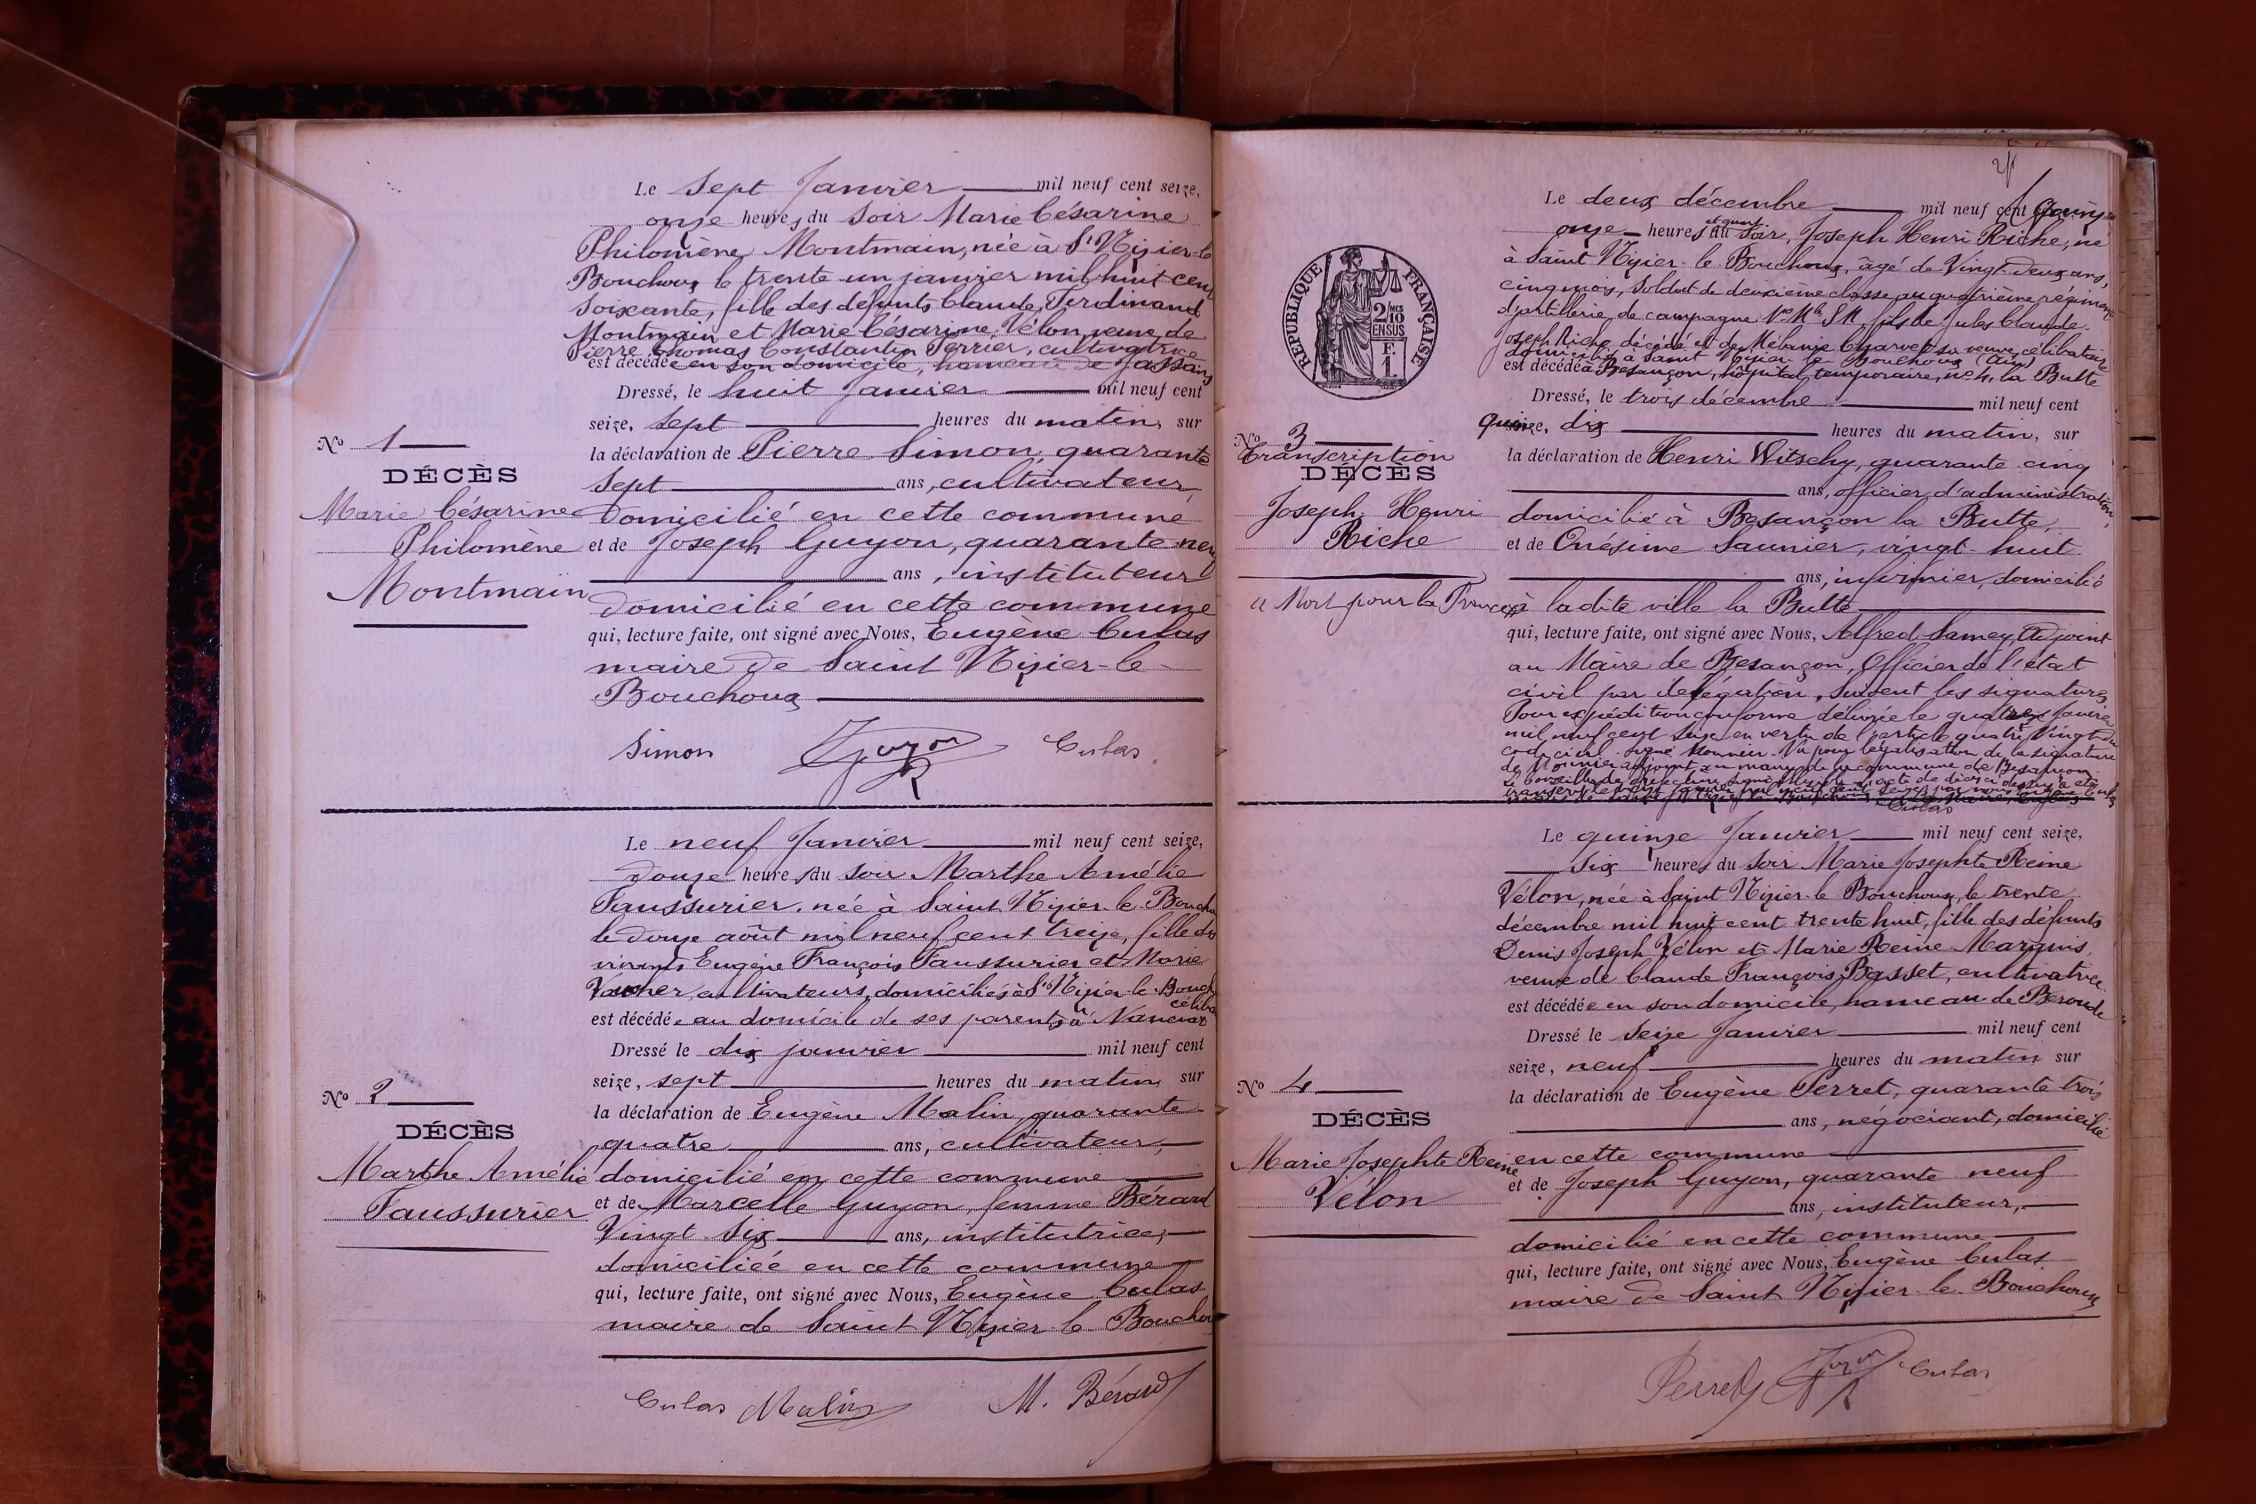 Le sept Janvier mil neuf cent seize,
onze heures du soir Marie Césarine
Philomène Montmain, née à St Nizier-le
Bouchoux le trente-un janvier mil huit cent
soixante, fille des défunts Claude Ferdinand
Montmain et Marie Césarine Vélon, veuve de
Pierre Thomas Constantin Perrier, cultivatrice
est décédée en son domicile, hameau de Tassans
Dressé, le huit Janvier mil neuf cent
seize, sept heures du matin, sur
No 1
la déclaration de Pierre Simon, quarante
DÉCÈS
sept ans, cultivateur,
Marie Césarine
domicilié en cette commune
Philomène
et de Joseph Guyon, quarante neuf
ans, instituteur
Montmain
domicilié en cette commune
qui, lecture faite, ont signé avec Nous, Eugène Culas
maire de Saint Nizier-le-
Bouchoux
Simon Guyon Culas
Le neuf Janvier mil neuf cent seize,
douze heures du soir Marthe Amélie
Faussurier, née à Saint Nizier le Bouchou
le douze août mil neuf cent treize, fille des
vivants Eugène François Faussurier et Marie
Vaucher, cultivateurs, domiciliés à St Nizier le Bouch
céliba
est décédée au domicile de ses parents, à Nanciat
Dressé le dix janvier mil neuf cent
seize, sept heures du matin, sur
No 2
la déclaration de Eugène Malin, quarante
DÉCÈS
quatre ans, cultivateur,
Marthe Amélie
domicilié en cette commune
Faussurier
et de Marcelle Guyon, femme Bérard
Vingt six ans, institutrice,
domiciliée en cette commune
qui, lecture faite, ont signé avec Nous, Eugène Culas
maire de Saint Nizier-le Bouchou
Culas Malin M. Bérard
Le deux décembre mil neuf cent quinze
et quart
onze heures du soir, Joseph Henri Riche, né
à Saint Nizier-le-Bouchoux, âgé de Vingt-deux ans,
cinq mois, Soldat de deuxième classe au quatrième régiment
d'artillerie de campagne, fils de Jules Claude
Joseph Riche, décédé et de Mélanie Charvet sa veuve, célibataire
domicilié à Saint Nizier le Bouchoux (Ain)
est décédé à Besançon, hôpital temporaire, no 4, la Butte
RÉPUBLIQUE FRANÇAISE
2/10
EN SUS
F.
1.
Dressé, le trois décembre mil neuf cent
quinze, dix heures du matin, sur
No 3
Transcription
DÉCÈS
la déclaration de Henri Witschy, quarante-cinq
ans, officier d'administration,
Joseph Henri
domicilié à Besançon la Butte,
Riche
et de Onésime Saunier, vingt-huit
ans, infirmier, domicilié
Mort pour la France
à ladite ville la Butte
qui, lecture faite, ont signé avec Nous, Alfred Samey, Adjoint
au Maire de Besançon, Officier de l'état
civil par délégation, suivent les signatures,
Pour expédition conforme délivrée le quatre Janvier
mil neuf cent seize en vertu de l'article quatre Vingt du
code civil. Signé Monnier. Vu pour légalisation de la signature
de Monnier adjoint au maire de la commune de Besançon
Culas
Le quinze Janvier mil neuf cent seize,
six heures du soir Marie Josephte Reine
Vélon, née à Saint Nizier le Bouchoux, le trente
décembre mil huit cent trente huit, fille des défunts
Denis Joseph Vélon et Marie Reine Marquis,
veuve de Claude François Basset, cultivatrice
est décédée en son domicile, hameau de Béroude
Dressé le seize Janvier mil neuf cent
seize, neuf heures du matin sur
No 4
la déclaration de Eugène Perret, quarante trois
DÉCÈS
ans, négociant, domicilié
Marie Josephte Reine
en cette commune
Vélon
et de Joseph Guyon, quarante neuf
ans, instituteur,
domicilié en cette commune
qui, lecture faite, ont signé avec Nous, Eugène Culas
maire de Saint Nizier-le-Bouchoux
Perret Guyon Culas